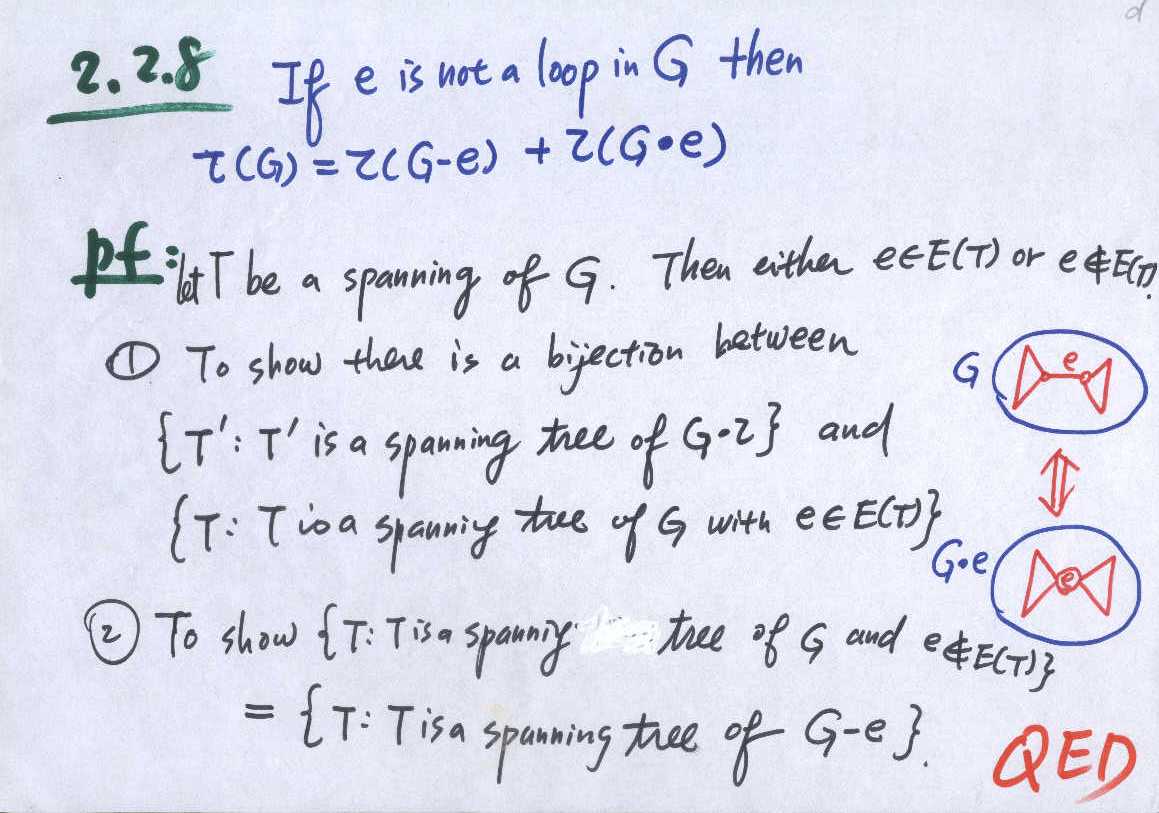 d
2.2.8 If e is not a loop in G then
τ(G) = τ(G-e) + τ(G•e)
pf: let T be a spanning of G. Then either e∈E(T) or e∉E(T).
① To show there is a bijection between
{T': T' is a spanning tree of G•2} and
{T: T is a spanniy tree of G with e∈E(T)}
② To show {T: T is a spanniy tree of G and e∉E(T)}
= {T: T is a spanning tree of G-e}.
G e
G•e e
QED